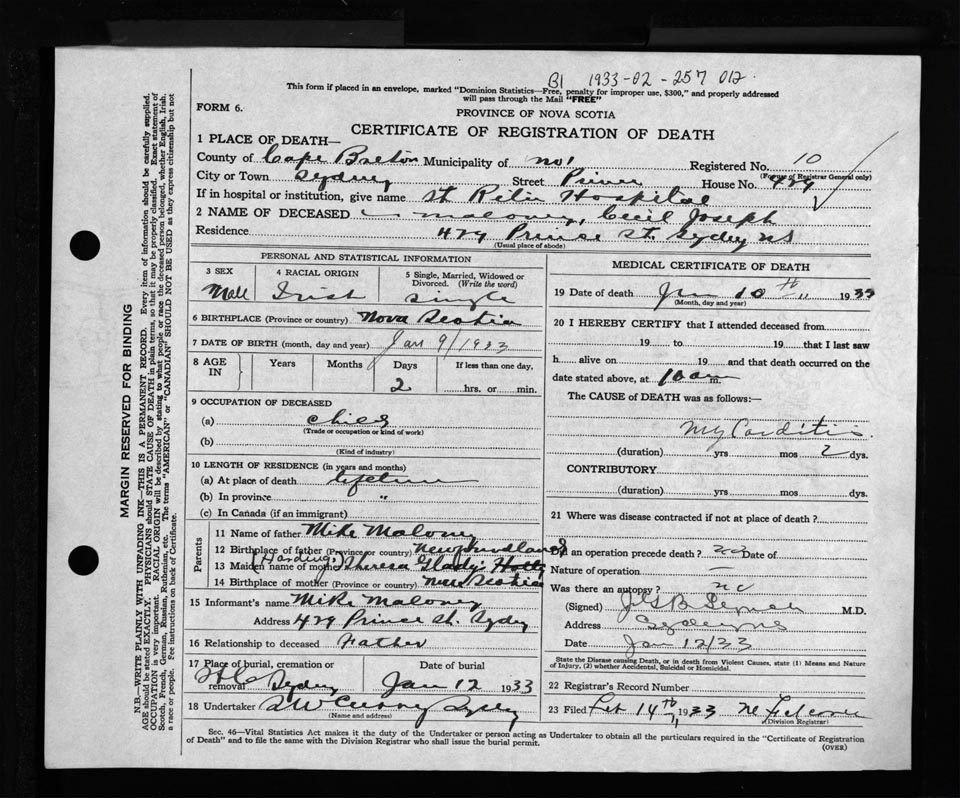 B1 1933-02-257 012
This form if placed in an envelope, marked "Dominion Statistics—Free, penalty for improper use, $300," and properly addressed
will pass through the Mail "FREE"
FORM 6.
PROVINCE OF NOVA SCOTIA
CERTIFICATE OF REGISTRATION OF DEATH
1 PLACE OF DEATH—
County of Cape Breton Municipality of No 1 Registered No. 10
(For use of Registrar General only)
City or Town Sydney Street Prince House No. 479
If in hospital or institution, give name St Rita Hospital
2 NAME OF DECEASED Maloney, Cecil Joseph
Residence 479 Prince St. Sydney NS
(Usual place of abode)
PERSONAL AND STATISTICAL INFORMATION
3 SEX 4 RACIAL ORIGIN 5 Single, Married, Widowed or
Divorced. (Write the word)
Male Irish Single
6 BIRTHPLACE (Province or country) Nova Scotia
7 DATE OF BIRTH (month, day and year) Jan 9/1933
8 AGE IN Years Months Days If less than one day,
2 hrs. or min.
9 OCCUPATION OF DECEASED
(a)
(Trade or occupation or kind of work)
(b)
(Kind of industry)
10 LENGTH OF RESIDENCE (in years and months)
(a) At place of death lifetime
(b) In province "
(c) In Canada (if an immigrant)
Parents
11 Name of father Mike Maloney
12 Birthplace of father (Province or country) Newfoundland
(Harding)
13 Maiden name of mother Theresa Gladys
14 Birthplace of mother (Province or country) Nova Scotia
15 Informant's name Mike Maloney
Address 479 Prince St. Sydney
16 Relationship to deceased Father
17 Place of burial, cremation or removal Date of burial
Sydney Jan 12 1933
18 Undertaker Sydney
(Name and address)
MEDICAL CERTIFICATE OF DEATH
19 Date of death Jan 10th 1933
(Month, day and year)
20 I HEREBY CERTIFY that I attended deceased from
19 to 19 that I last saw
h alive on 19 and that death occurred on the
date stated above, at 10 am m.
The CAUSE of DEATH was as follows:—
Myocarditis.
(duration) yrs mos 2 dys.
CONTRIBUTORY
(duration) yrs mos dys.
21 Where was disease contracted if not at place of death?
Did an operation precede death? no Date of
Nature of operation —
Was there an autopsy? no
(Signed) M.D.
Address Sydney NS
Date Jan 12/33
State the Disease causing Death, or in death from Violent Causes, state (1) Means and Nature
of Injury, (2) whether Accidental, Suicidal or Homicidal.
22 Registrar's Record Number
23 Filed Feb 14th 1933
(Division Registrar)
Sec. 46—Vital Statistics Act makes it the duty of the Undertaker or person acting as Undertaker to obtain all the particulars required in the "Certificate of Registration
of Death" and to file the same with the Division Registrar who shall issue the burial permit.
(OVER)
MARGIN RESERVED FOR BINDING
N.B.—WRITE PLAINLY WITH UNFADING INK—THIS IS A PERMANENT RECORD. Every item of information should be carefully supplied.
AGE should be stated EXACTLY. PHYSICIANS should STATE CAUSE OF DEATH in plain terms, so that it may be properly classified. Exact statement of
OCCUPATION is very important. RACIAL ORIGIN will be described by stating to what people or race the deceased person belonged, whether English, Irish,
Scotch, French, German, Russian, Ruthenian, etc. The terms "AMERICAN" or "CANADIAN" SHOULD NOT BE USED as they express citizenship but not
a race or people. Fee instructions on back of Certificate.